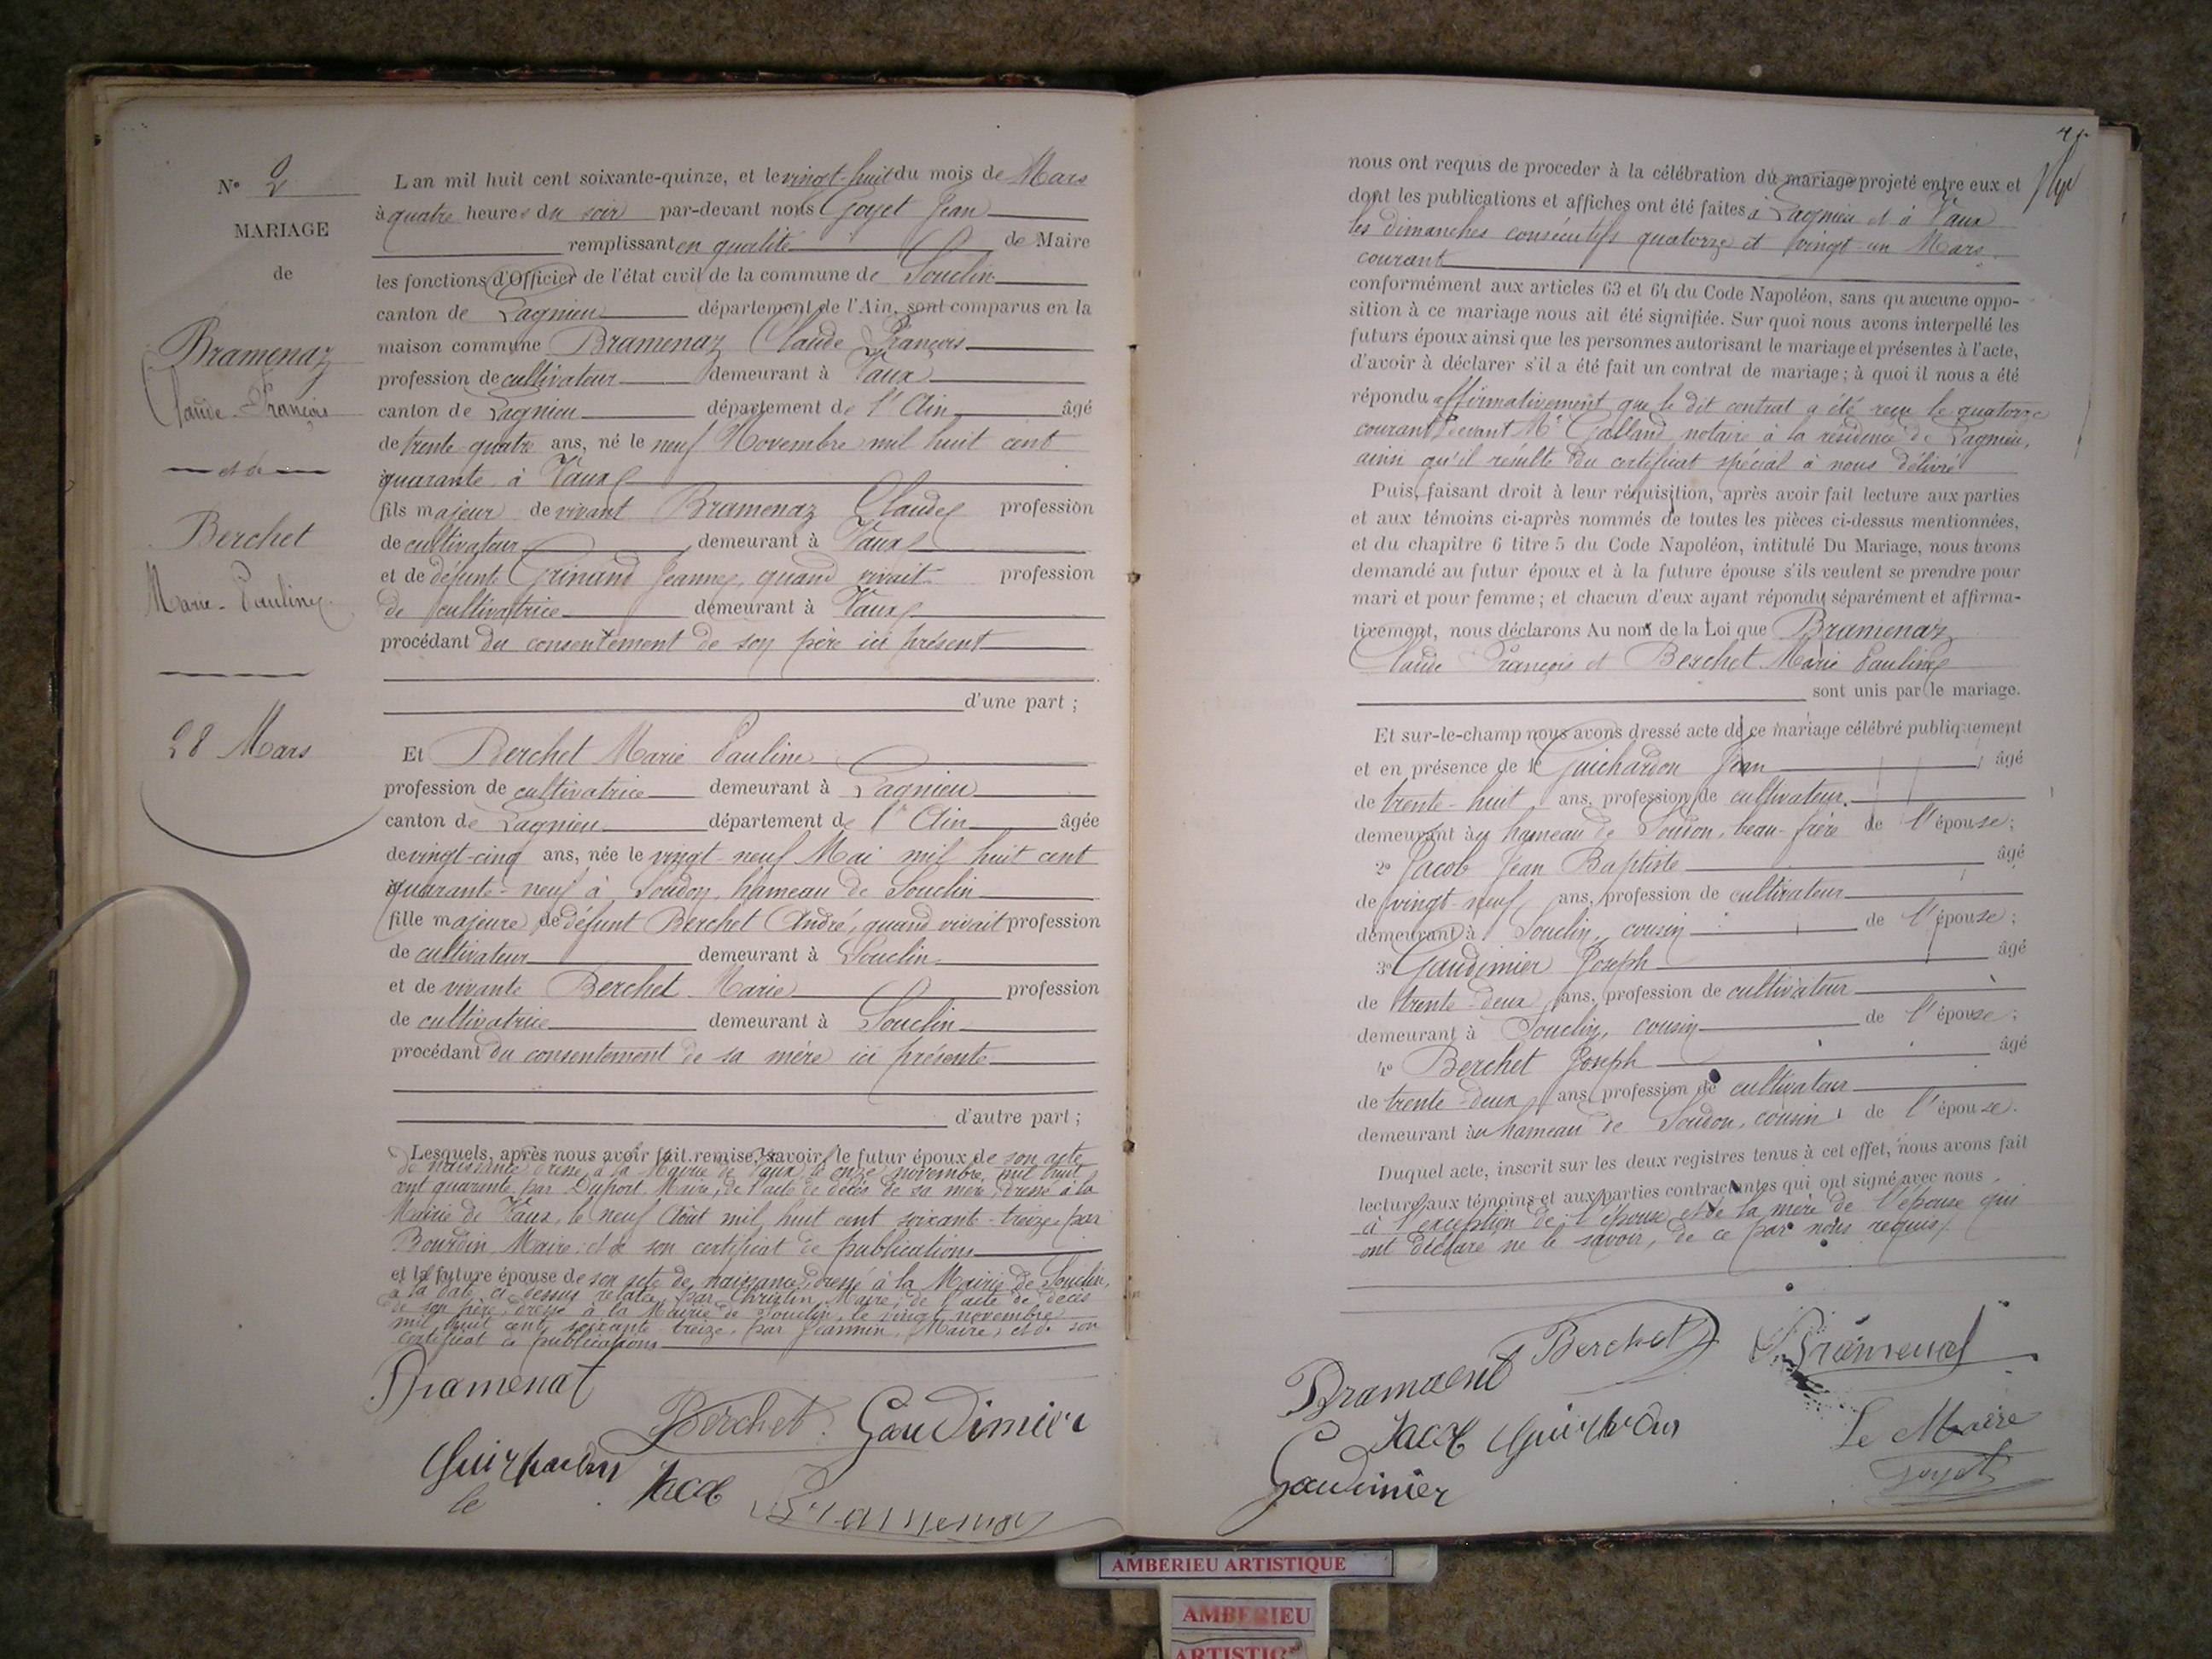 N° 2
MARIAGE
de
Bramenaz
Claude-François
et de
Berchet
Marie-Pauline
28 Mars
L an mil huit cent soixante-quinze, et le vingt-huit du mois de Mars
à quatre heures du soir par-devant nous Goyet Jean
remplissant en qualité de Maire
les fonctions d'Officier de l'état civil de la commune de Souclin
canton de Lagnieu département de l'Ain, sont comparus en la
maison commune Bramenaz Claude François
profession de cultivateur demeurant à Vaux
canton de Lagnieu département de l'Ain âgé
de trente quatre ans, né le neuf Novembre mil huit cent
quarante à Vaux
fils majeur de vivant Bramenaz Claude profession
de cultivateur demeurant à Vaux
et de défunte Grinand Jeanne, quand vivait profession
de cultivatrice demeurant à Vaux
procédant du consentement de son père ici présent
d'une part ;
Et Berchet Marie Pauline
profession de cultivatrice demeurant à Lagnieu
canton de Lagnieu département de l'Ain âgée
de vingt-cinq ans, née le vingt-neuf Mai mil huit cent
quarante-neuf à Soudon, hameau de Souclin
fille majeure de défunt Berchet André, quand vivait profession
de cultivateur demeurant à Souclin
et de vivante Berchet Marie profession
de cultivatrice demeurant à Souclin
procédant du consentement de sa mère ici présente
d'autre part ;
Lesquels, après nous avoir fait remise, savoir, le futur époux de son acte
de naissance dressé à la Mairie de Vaux le onze novembre mil huit
cent quarante par Duport Maire, de l'acte de décès de sa mère dressé à la
Mairie de Vaux, le neuf Août mil huit cent soixante-treize par
Bourdin Maire et de son certificat de publications
et la future épouse de son acte de naissance, dressé à la Mairie de Souclin,
à la date ci dessus relatée par Christin Maire, de l'acte de décès
de son père, dressé à la Mairie de Souclin, le vingt novembre
mil huit cent soixante treize, par Jeannin, Maire, et de son
certificat de publications
Bramenat
Berchet Gaudimier
Guichardon Jacob
le
Bramenaz
nous ont requis de proceder à la célébration du mariage projeté entre eux et
dont les publications et affiches ont été faites à Lagnieu et à Vaux
les dimanches consécutifs quatorze et vingt-un Mars
courant
conformément aux articles 63 et 64 du Code Napoléon, sans qu aucune oppo-
sition à ce mariage nous ait été signifiée. Sur quoi nous avons interpellé les
futurs époux ainsi que les personnes autorisant le mariage et présentes à l'acte,
d'avoir à déclarer s'il a été fait un contrat de mariage ; à quoi il nous a été
répondu affirmativement que le dit contrat a été reçu le quatorze
courant devant Me Galland notaire à la résidence de Lagnieu,
ainsi qu'il résulte du certificat spécial à nous délivré
Puis, faisant droit à leur réquisition, après avoir fait lecture aux parties
et aux témoins ci-après nommés de toutes les pièces ci-dessus mentionnées,
et du chapitre 6 titre 5 du Code Napoléon, intitulé Du Mariage, nous avons
demandé au futur époux et à la future épouse s'ils veulent se prendre pour
mari et pour femme ; et chacun d'eux ayant répondu séparément et affirma-
tivement, nous déclarons Au nom de la Loi que Bramenaz
Claude François et Berchet Marie Pauline
sont unis par le mariage.
Et sur-le-champ nous avons dressé acte de ce mariage célébré publiquement
et en présence de 1° Guichardon Jean âgé
de trente-huit ans, profession de cultivateur
demeurant au hameau de Soudon, beau-frère de l'épouse ;
2° Jacob Jean Baptiste âgé
de vingt-neuf ans, profession de cultivateur
demeurant à Souclin, cousin de l'épouse ;
3° Gaudimier Joseph âgé
de trente-deux ans, profession de cultivateur
demeurant à Souclin, cousin de l'épouse ;
4° Berchet Joseph âgé
de trente-deux ans, profession de cultivateur
demeurant au hameau de Soudon, cousin de l'épouse.
Duquel acte, inscrit sur les deux registres tenus à cet effet, nous avons fait
lecture aux témoins et aux parties contractantes qui ont signé avec nous
à l'exception de l'épouse et de la mère de l'épouse qui
ont déclaré ne le savoir, de ce par nous requis
Berchet Bramenaz
Bramenat
Jacob Guichardon Le Maire
Gaudimier Goyet
AMBERIEU ARTISTIQUE
AMBERIEU
ARTISTIQ